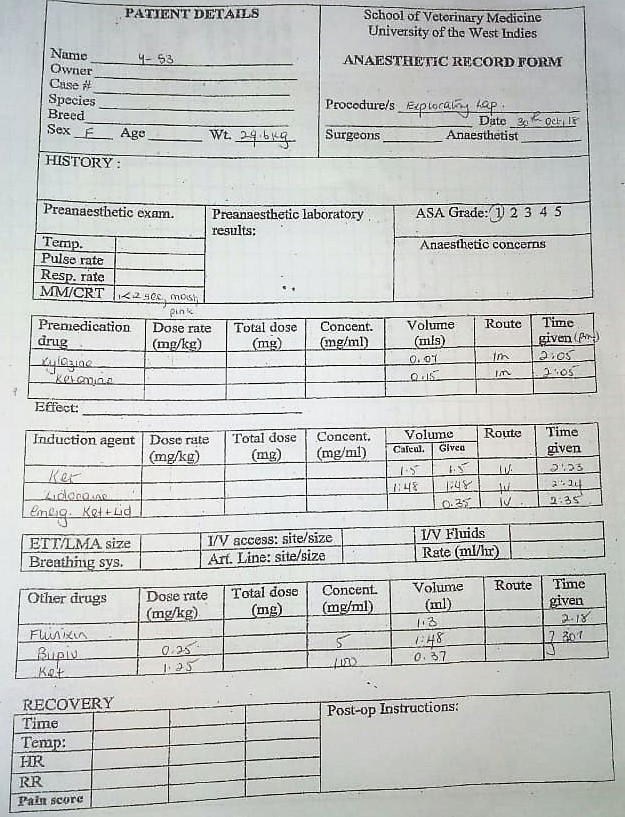 PATIENT DETAILS
Name 4-53
Owner
Case #
Species
Breed
Sex F Age Wt. 29.6kg
School of Veterinary Medicine
University of the West Indies
ANAESTHETIC RECORD FORM
Procedure/s Exploratory Lap.
Date 30th Oct, 18
Surgeons Anaesthetist
HISTORY :
Preanaesthetic exam.
Temp.
Pulse rate
Resp. rate
MM/CRT <2 sec, moist,
pink
Preanaesthetic laboratory
results:
ASA Grade: 1 2 3 4 5
Anaesthetic concerns
Premedication drug Dose rate (mg/kg) Total dose (mg) Concent. (mg/ml) Volume (mls) Route Time given (pm)
Xylazine 0.07 Im 2:05
Ketamine 0.15 Im 2:05
Effect:
Induction agent Dose rate (mg/kg) Total dose (mg) Concent. (mg/ml) Volume Calcul. Given Route Time given
Ket 1.5 1.5 IV 2:23
Lidocaine 1.48 1.48 IV 2:24
Emerg. Ket+Lid 0.35 IV 2:35
ETT/LMA size I/V access: site/size I/V Fluids
Breathing sys. Art. Line: site/size Rate (ml/hr)
Other drugs Dose rate (mg/kg) Total dose (mg) Concent. (mg/ml) Volume (ml) Route Time given
Flunixin 1.3 2.18
Bupiv 0.25 5 1.48
Ket 1.25 100 0.37
RECOVERY
Time
Temp:
HR
RR
Pain score
Post-op Instructions: